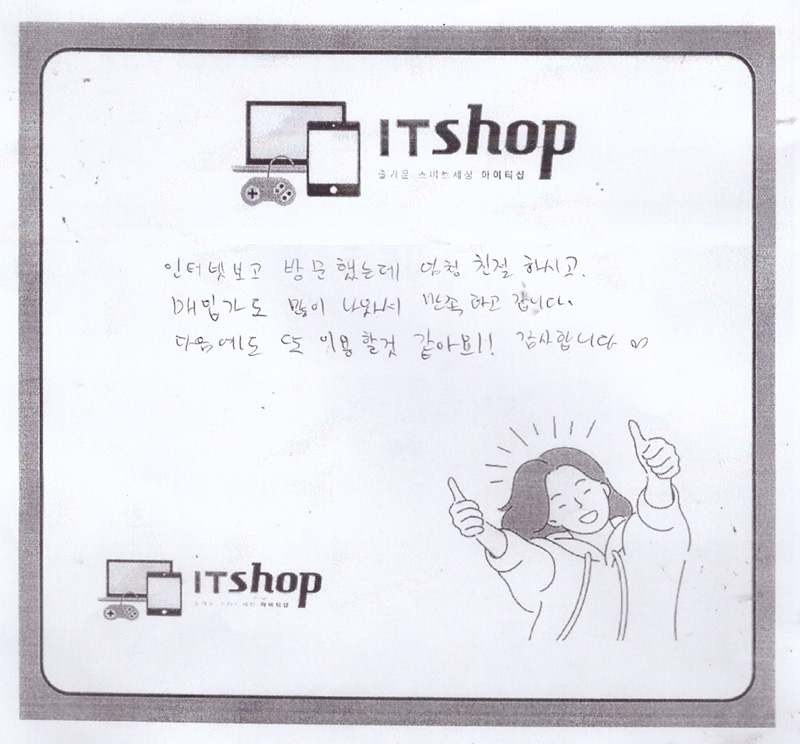 ITshop
즐거운 스마트세상 아이티샵
인터넷보고 방문했는데 엄청 친절하시고.
매입가도 많이 나와서 만족하고 갑니다.
다음에도 또 이용할것 같아요!! 감사합니다
ITshop
즐거운 스마트세상 아이티샵